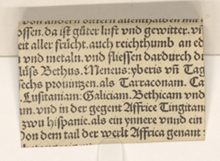 ossen. da ist gůter lufft vnd gewitter. vi
eit aller frücht. auch reichthumb an ed
vnd metaln. vnd fliessen dardurch d
Bethus. Meneus: yberis vñ Tag
sechs prouintzen. als Tarraconam. Ca
Lusitaniam: Galiciam. Bethicam vnd
m. vnd in der gegent Affrice Tingitani
zwu hispanie. als ein ynnere vnnd ein
von dem tail der werlt Affrica genant